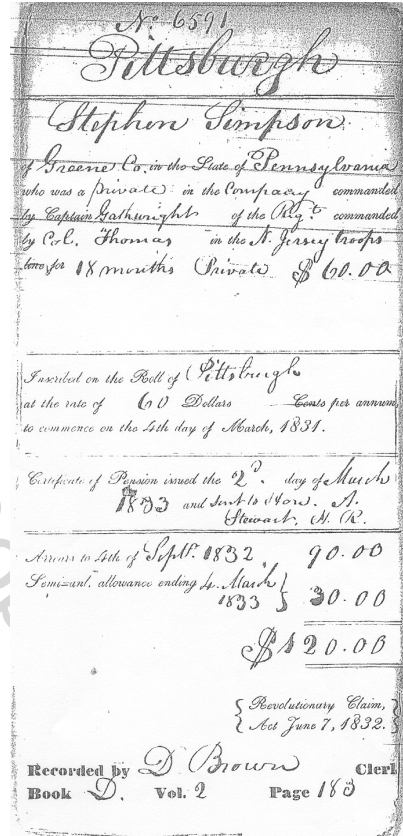 No 6591
Pittsburgh
Stephen Simpson
of Greene Co. in the State of Pennsylvania
who was a Private in the Company commanded
by Captain Gathwright of the Regt commanded
by Col. Thomas in the N. Jersey troops
for 18 months Private $ 60.00
Inscribed on the Roll of Pittsburgh
at the rate of 60 Dollars Cents per annum,
to commence on the 4th day of March, 1831.
Certificate of Pension issued the 2d. day of March
1833 and sent to Hon. A.
Stewart, H. R.
Arrears to 4th of Sept. 1832 90.00
Semi-anl. allowance ending 4. March
1833 } 30.00
$120.00
{ Revolutionary Claim, }
{ Act June 7, 1832. }
Recorded by D Brown Clerk
Book D. Vol. 2 Page 183